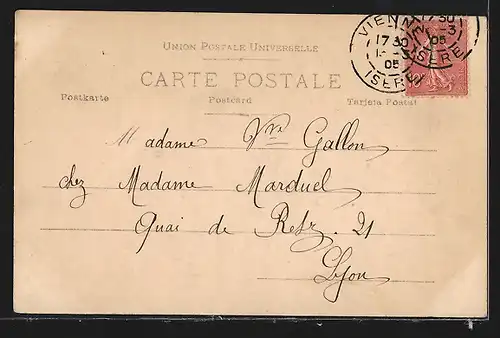 UNION POSTALE UNIVERSELLE
CARTE POSTALE
Postkarte Postcard Tarjeta Postal
VIENNE
17 30
1-3
05
ISERE
Madame Vve Gallon
chez Madame Marduel
Quai de Retz. 21
Lyon